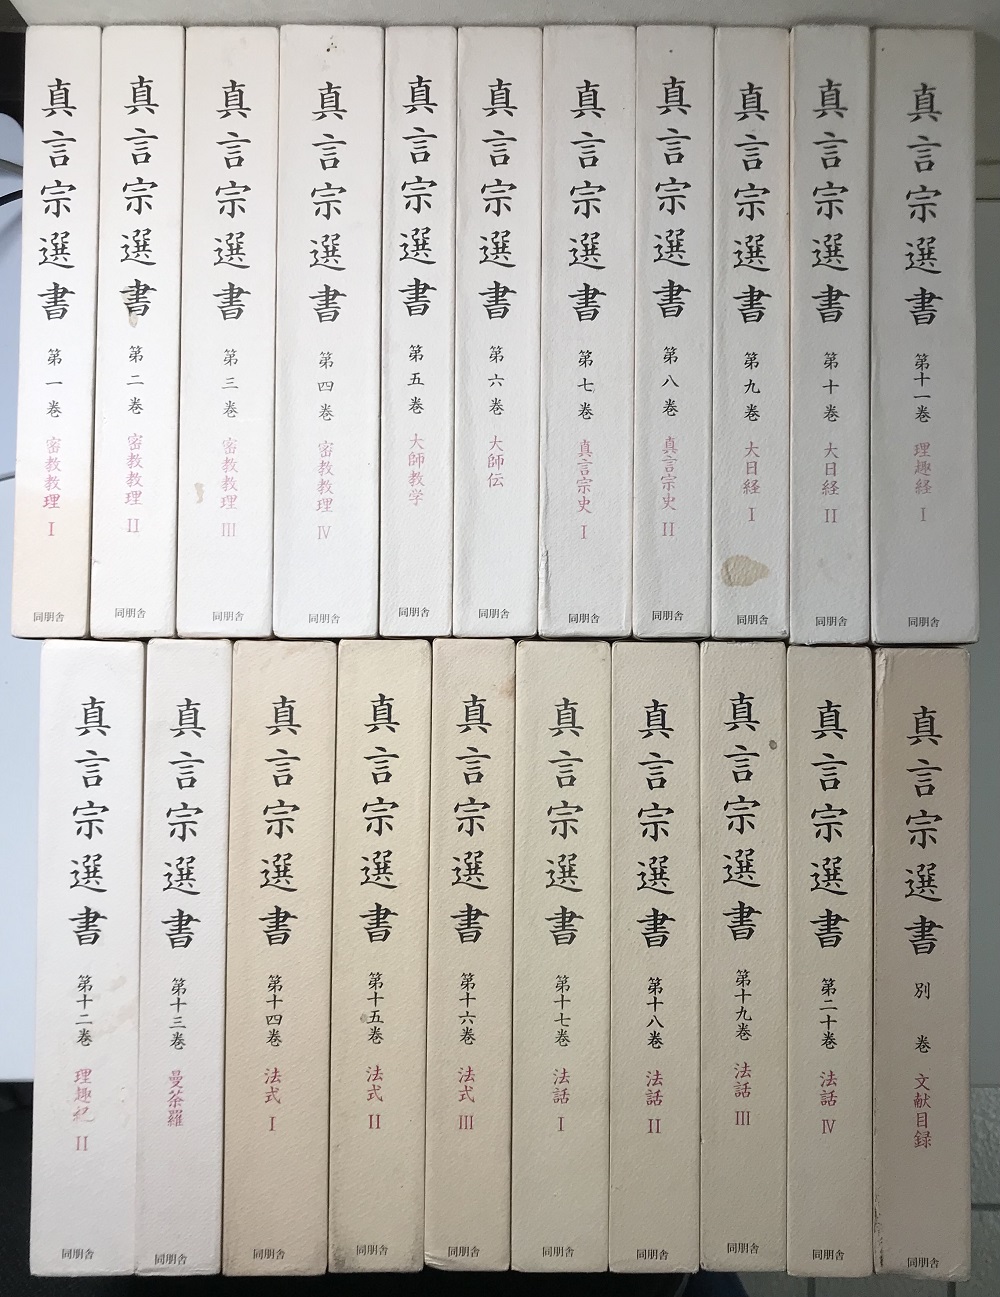 真言宗選書 第一巻 密教教理 Ⅰ 同朋舎
真言宗選書 第二巻 密教教理 Ⅱ 同朋舎
真言宗選書 第三巻 密教教理 Ⅲ 同朋舎
真言宗選書 第四巻 密教教理 Ⅳ 同朋舎
真言宗選書 第五巻 大師教学 同朋舎
真言宗選書 第六巻 大師伝 同朋舎
真言宗選書 第七巻 真言宗史 Ⅰ 同朋舎
真言宗選書 第八巻 真言宗史 Ⅱ 同朋舎
真言宗選書 第九巻 大日経 Ⅰ 同朋舎
真言宗選書 第十巻 大日経 Ⅱ 同朋舎
真言宗選書 第十一巻 理趣経 Ⅰ 同朋舎
真言宗選書 第十二巻 理趣経 Ⅱ 同朋舎
真言宗選書 第十三巻 曼荼羅 同朋舎
真言宗選書 第十四巻 法式 Ⅰ 同朋舎
真言宗選書 第十五巻 法式 Ⅱ 同朋舎
真言宗選書 第十六巻 法式 Ⅲ 同朋舎
真言宗選書 第十七巻 法話 Ⅰ 同朋舎
真言宗選書 第十八巻 法話 Ⅱ 同朋舎
真言宗選書 第十九巻 法話 Ⅲ 同朋舎
真言宗選書 第二十巻 法話 Ⅳ 同朋舎
真言宗選書 別巻 文献目録 同朋舎